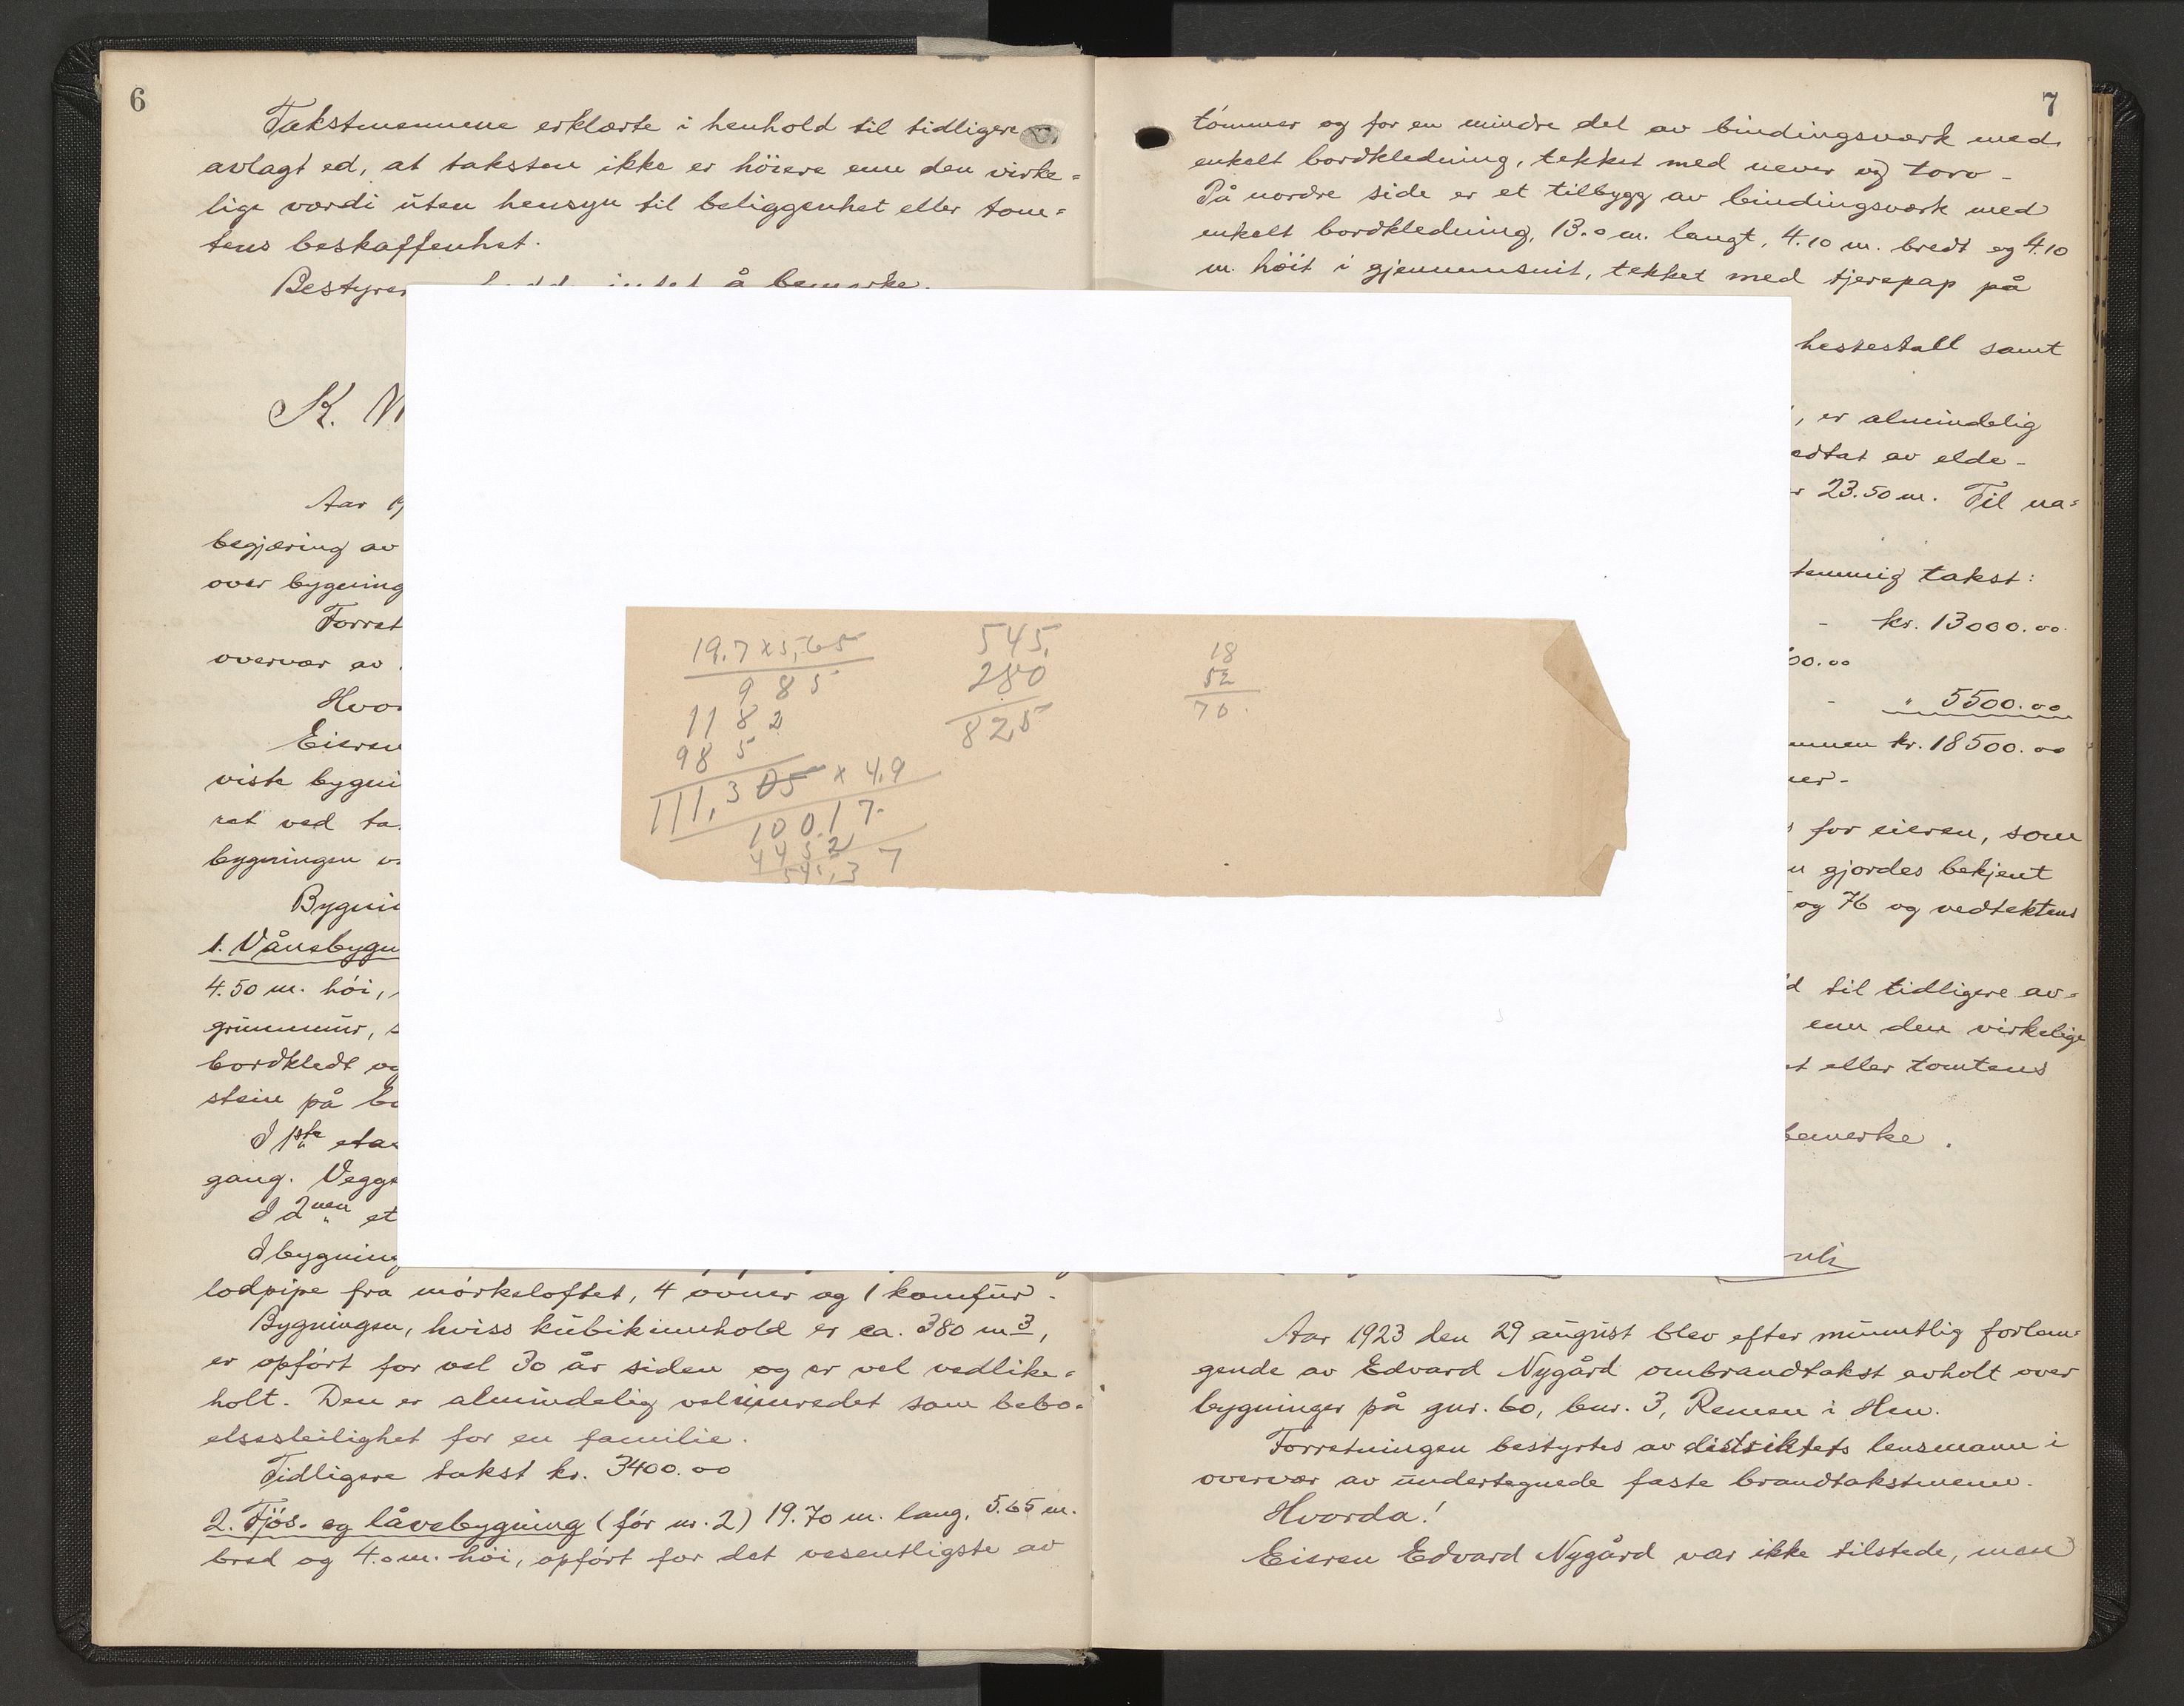 6
Takstmennene erklærte i henhold til tidligere
avlagt ed, at taksten ikke er höiere enn den virke=
lige værdi uten hensyn til beliggenhet eller tom=
tens beskaffenhet.
Bestyrer hadde intet å bemerke.
K.
Aar
begjæring av
over bygning
Forret
overvær av
Hvor
Eieren
viste bygni
ret ved ta
bygningen
Bygni
1. Vånebygn
4.50 m. höi,
grunnmur,
bordkledt og
stein på
I 1ste etas
gang. Vegge
I 2nen et
I bygning
lodpipe fra mörkeloftet, 4 ovner og 1 komfur.
Bygningen, hviss kubikinnhold er ca. 380 m3,
er opfört for vel 30 år siden og er vel vedlike=
holt. Den er almindelig velinnredet som bebo=
elsesleilighet for en familie.
Tidligere takst kr. 3400.00
2. Fjös- og låvebygning (för nr. 2) 19.70 m. lang, 5.65 m.
bred og 4.0 m. höi, opfört for det vesentligste av
19,7 x 5,65
985
1182
985
111,305 x 4,9
100.17
4452
545,37
545,
280
825
18
52
70.
7
tömmer og for en mindre del av bindingsværk med
enkelt bordkledning, tekket med never og torv.
På nordre side er et tilbygg av bindingsværk med
enkelt bordkledning, 13.0 m. langt, 4.10 m. bredt og 4.10
m. höit i gjennemsnit, tekket med tjerepap på
hestestall samt
, er almindelig
edtat av elde-
r 23.50 m. Til na=
temmig takst:
- kr. 13000.00
00.00
- " 5500.00
mmen kr. 18500.00
ner.
for eieren, som
n gjordes bekjent
og 76 og vedtektens
d til tidligere av=
enn den virkelige
et eller tomtens
bemerke.
Aar 1923 den 29 august blev efter munntlig forlan=
gende av Edvard Nygård ombrandtakst avholt over
bygninger på gnr. 60, bnr. 3, Remen i Hen.
Forretningen bestyrtes av distriktets lensmann i
overvær av undertegnede faste brandtakstmenn.
Hvorda!
Eieren Edvard Nygård var ikke tilstede, men